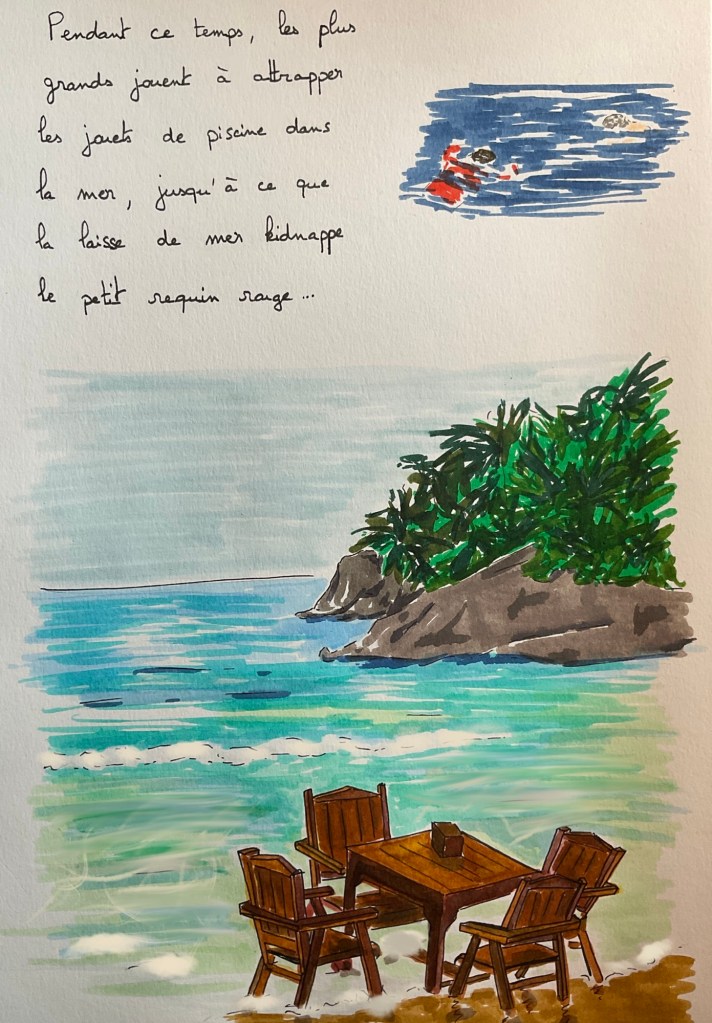 Pendant ce temps, les plus
grands jouent à attrapper
les jouets de piscine dans
la mer, jusqu'à ce que
la laisse de mer kidnappe
le petit requin rouge...